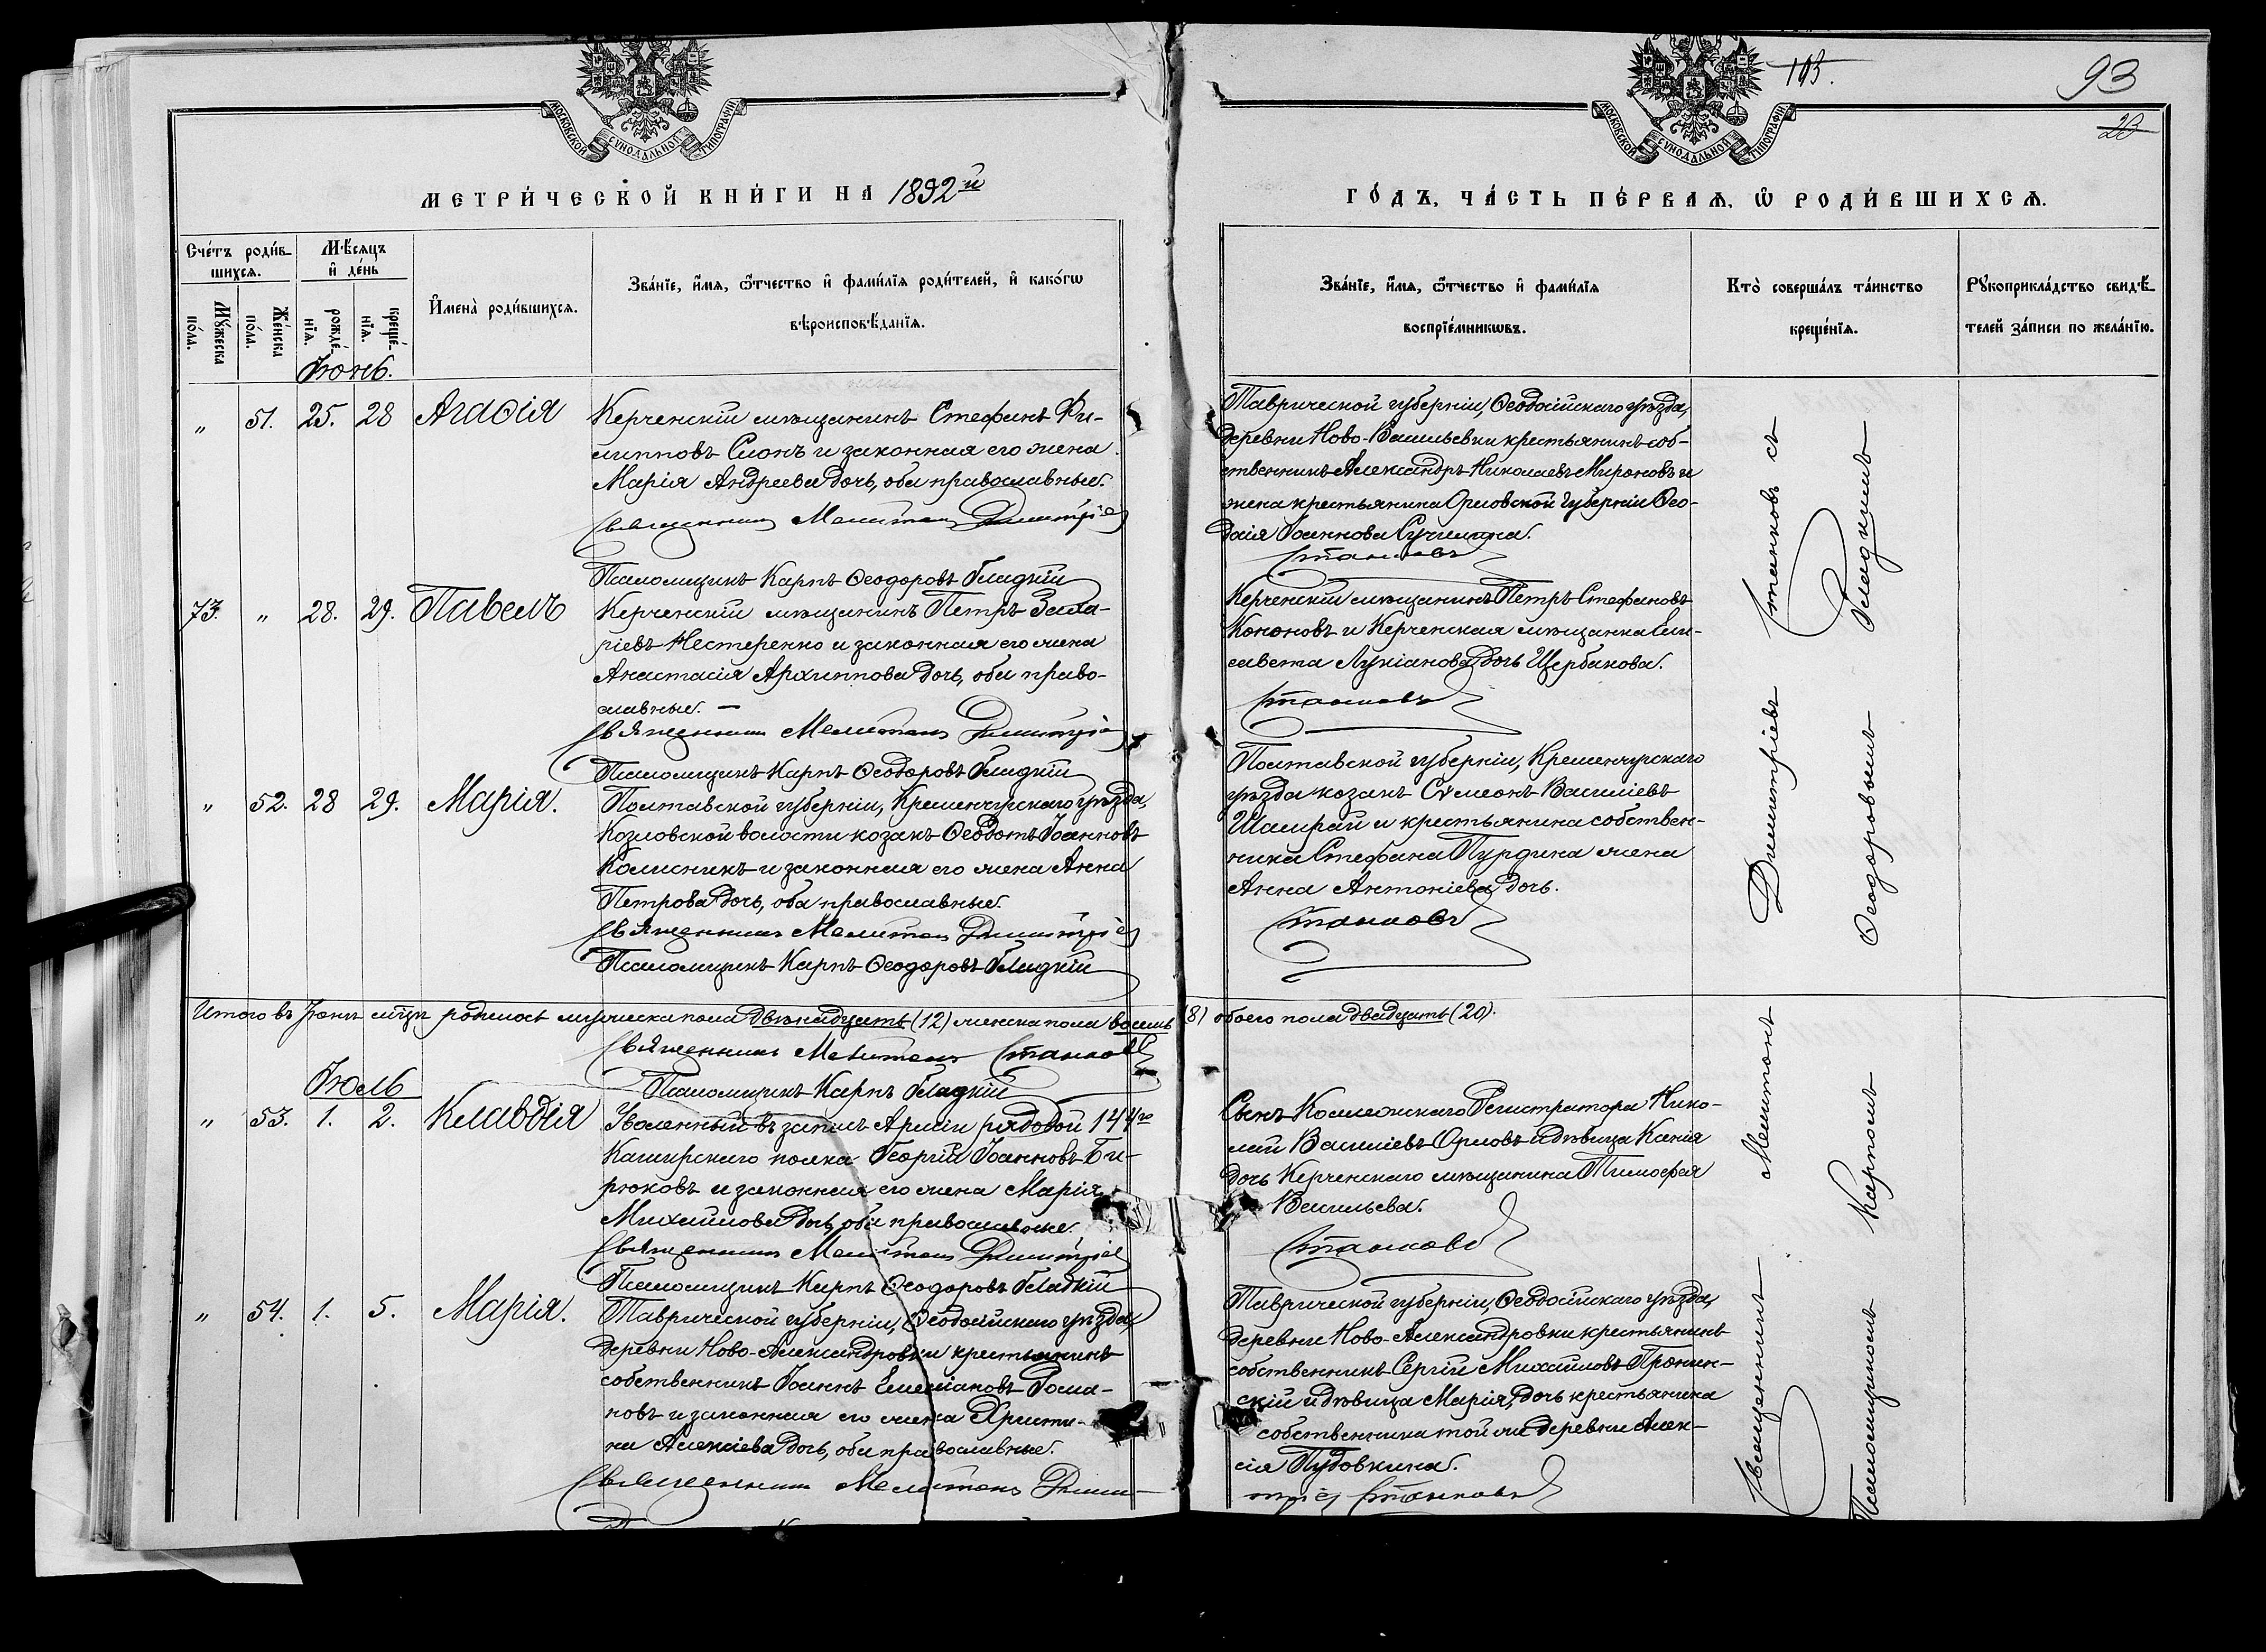 МОСКОВСКОЙ СУНОДАЛЬНОЙ ТИПОГРАФІИ
МЕТРИ́ЧЕСКОЙ КНИ́ГИ НА 1892й
Сче́тъ роди́вшихсѧ.
Мꙋ́жеска по́ла.
Же́нска по́ла.
Мѣ́сѧцъ и҆ де́нь
рожде́нїѧ.
креще́нїѧ.
И҆мена̀ роди́вшихсѧ.
Зва́нїе, и҆́мѧ, ѻ҆́тчество и҆ фами́лїѧ роди́телей, и҆ како́гѡ
вѣроисповѣ́данїѧ.
Іюнь.
„ 51. 25. 28 Агафія
Керченскій мѣщанинъ Стефанъ Фи-
липповъ Слонъ и законная его жена
Марія Андреева дочь, оба православные.
Священникъ Мелитонъ Димитріев
Псаломщикъ Карпъ Ѳеодоровъ Гладкій
73. „ 28. 29. Павелъ
Керченскій мѣщанинъ Петръ Заха-
ріевъ Нестеренко и законная его жена
Анастасія Архиппова дочь, оба право-
славные. —
Священникъ Мелитонъ Димитріев
Псаломщикъ Карпъ Ѳеодоровъ Гладкій
„ 52. 28 29. Марія.
Полтавской губерніи, Кременчугскаго уѣзда,
Козловской волости козакъ Ѳеодотъ Іоанновъ
Колисникъ и законная его жена Анна
Петрова дочь, оба православные.
Священникъ Мелитонъ Димитріев
Псаломщикъ Карпъ Ѳеодоровъ Гладкій
Итого въ Іюнѣ мѣцѣ родилось мужеска пола двѣнадцать (12) женска пола восемь (8) обоего пола двадцать (20).
Священникъ Мелитонъ Станковъ
Псаломщикъ Карпъ Гладкій
Іюль
„ 53. 1. 2. Клавдія
Уволенный въ запасъ Арміи рядовой 144го
Каширскаго полка Георгій Іоанновъ Би-
рюковъ и законная его жена Марія
Михайлова дочь, оба православные.
Священникъ Мелитонъ Димитріев
Псаломщикъ Карпъ Ѳеодоровъ Гладкій
„ 54. 1. 5. Марія.
Таврической губерніи, Ѳеодосійскаго уѣзда,
деревни Ново-Александровки крестьянинъ
собственникъ Іоаннъ Емеліановъ Рома-
новъ и законная его жена Христи-
на Алексіева дочь, оба православные.
Священникъ Мелитонъ Дими-
МОСКОВСКОЙ СУНОДАЛЬНОЙ ТИПОГРАФІИ
93
ГО́ДЪ, ЧА́СТЬ ПЕ́РВАѦ, Ѡ҆ РОДИ́ВШИХСѦ.
Зва́нїе, и҆́мѧ, ѻ҆́тчество и҆ фами́лїѧ
воспрїе́мникѡвъ.
Кто̀ соверша́лъ та́инство
креще́нїѧ.
Рꙋкоприкла́дство свидѣ́-
телей за́писи по жела́нїю.
Таврической губерніи, Ѳеодосійскаго уѣзда,
деревни Ново-Васильевки крестьянинъ соб-
ственникъ Александръ Николаевъ Мироновъ и
жена крестьянина Орловской губерніи Ѳео-
досія Іоаннова
Станковъ
Керченскій мѣщанинъ Петръ Стефановъ
Кононовъ и Керченская мѣщанка Ели-
савета Лукіанова дочь Щербакова.
Станковъ
Полтавской губерніи, Кременчугскаго
уѣзда козакъ Сѵмеонъ Василіевъ
Шамрай и крестьянина собствен-
ника Стефана Пурдина жена
Анна Антоніева дочь.
Станковъ
Сынъ Коллежскаго Регистратора Нико-
лай Василіевъ Орловъ и дѣвица Ксенія
дочь Керченскаго мѣщанина Тимофея
Васильева.
Станковъ
Таврической губерніи, Ѳеодосійскаго уѣзда,
деревни Ново-Александровки крестьянинъ
собственникъ Сергій Михайловъ Пронин-
скій и дѣвица Марія, дочь крестьянина
собственника той же деревни Алек-
сія Пудовкина.
тріев Станковъ
Священникъ Мелитонъ Димитріевъ Станковъ съ
Псаломщикомъ Карпомъ Ѳеодоровымъ Гладкимъ